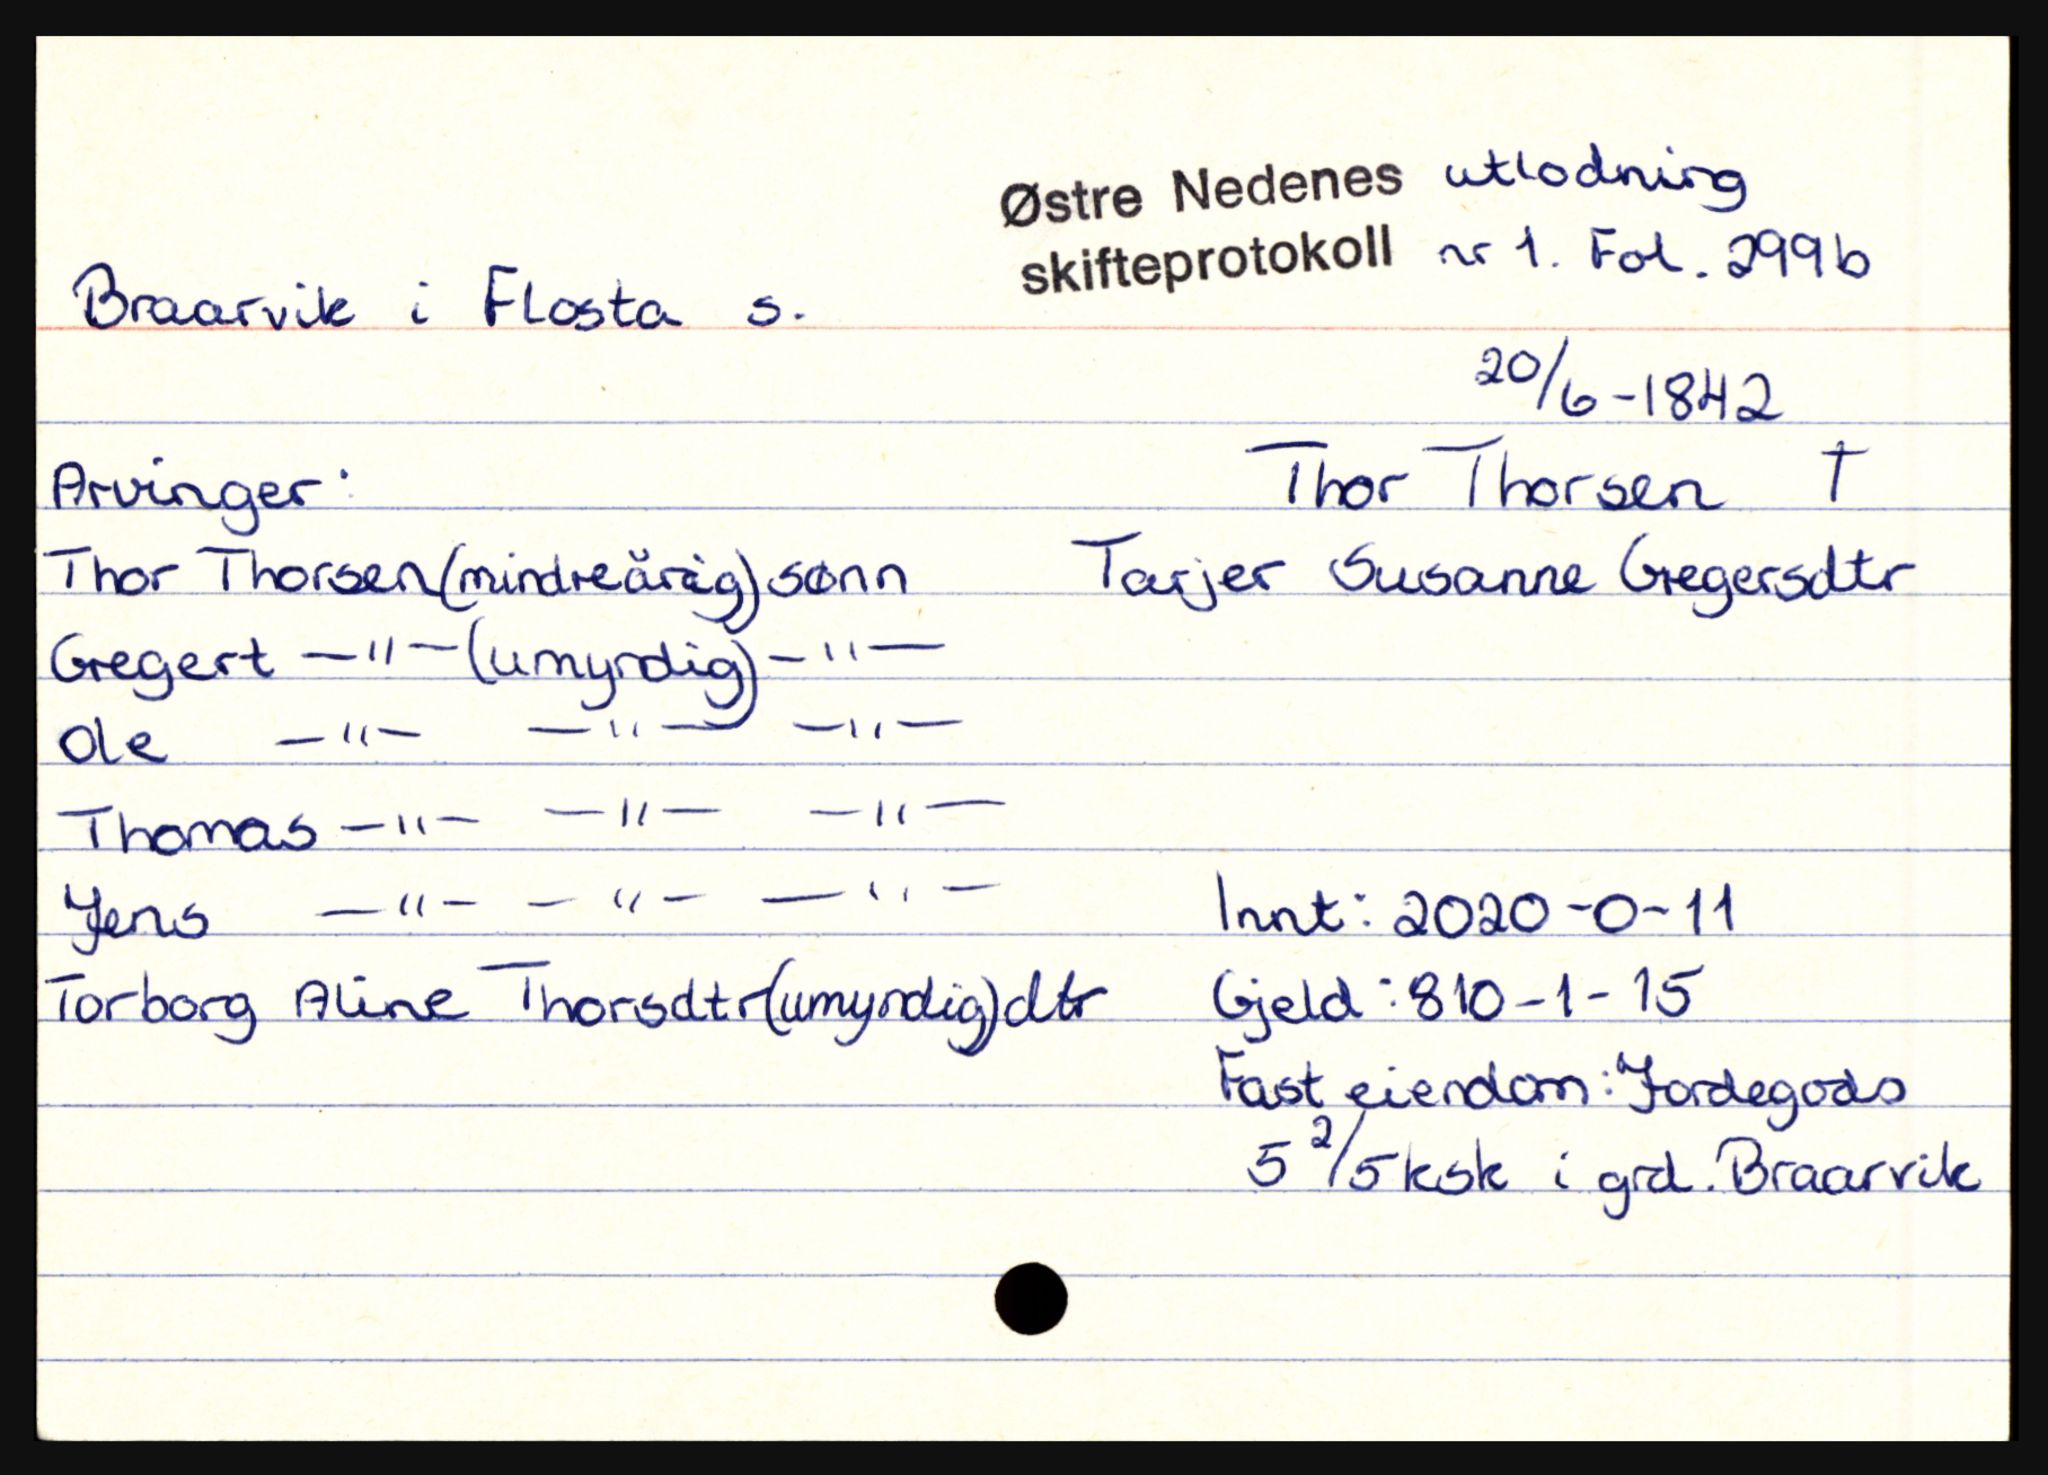 Østre Nedenes utlodning
skifteprotokoll nr 1. Fol. 299b
Braarvik i Flosta s.
20/6-1842
Arvinger: Thor Thorsen †
Thor Thorsen (mindreårig) sønn Tarjer Susanne Gregersdtr
Gregert -"- (umyndig) -"-
Ole -"- -"- -"-
Thomas -"- -"- -"-
Jens -"- -"- -"- Innt: 2020-0-11
Torborg Aline Thorsdtr (umyndig) dtr Gjeld: 810-1-15
Fast eiendom: Jordegods
5 2/5 ksk i grd. Braarvik